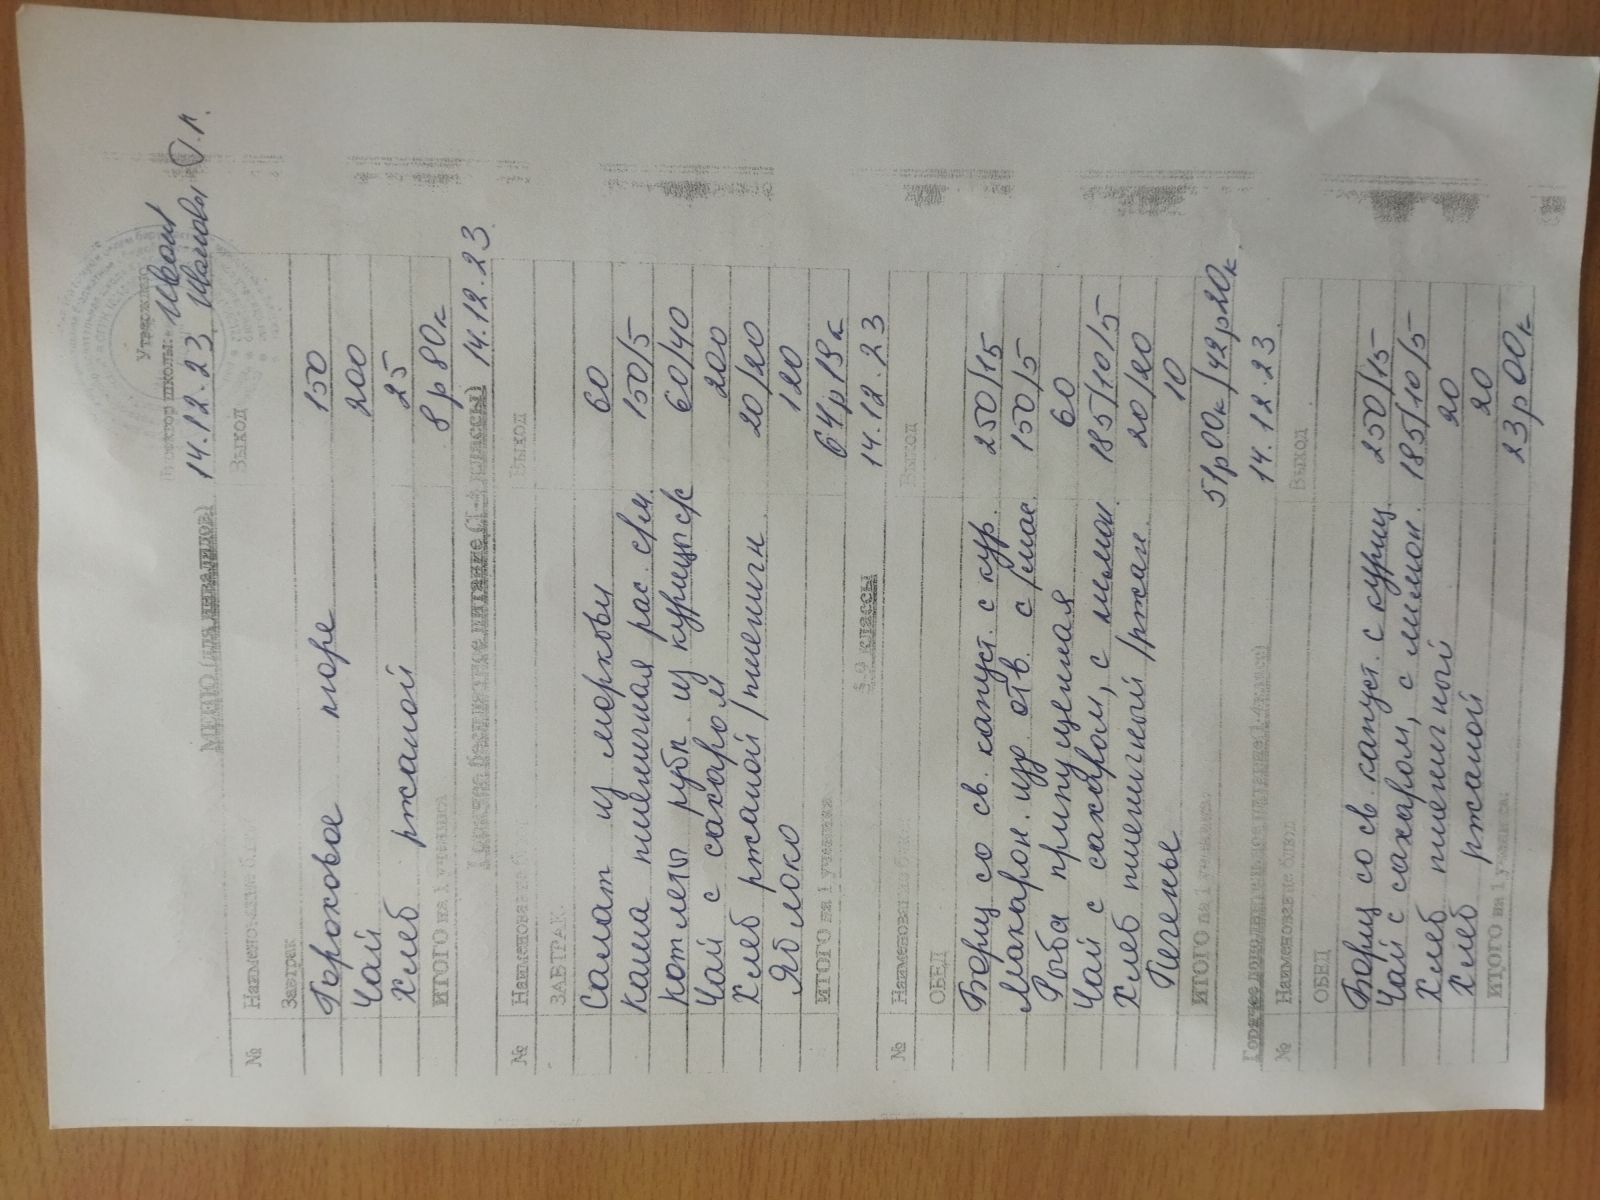 Утверждаю
Директор школы: Иван
14.12.23 Иванов
МЕНЮ (для инвалидов)
№ Наименование блюд Выход
Завтрак
Гороховое пюре 150
Чай 200
Хлеб ржаной 25
ИТОГО на 1 ученика 8р80к
Горячее бесплатное питание (1-4 классы) 14.12.23
№ Наименование блюд Выход
ЗАВТРАК
Салат из моркови 60
Каша пшеничная рас. с/м 150/5
Котлеты рубл. из куриц с/с 60/40
Чай с сахаром 200
Хлеб ржаной/пшенигн 20/20
Яблоко 120
ИТОГО на 1 ученика 64р19к
5-9 классы 14.12.23
№ Наименование блюд Выход
ОБЕД
Борщ со св. капуст. с кур. 250/15
Макарон. изд отв. с/мас 150/5
Рыба припущенная 60
Чай с сахаром, с лимон 185/10/5
Хлеб пшеничный/ржан. 20/20
Печенье 10
ИТОГО на 1 ученика. 51р00к/42р20к
14.12.23
№ Наименование блюд Выход
ОБЕД
Борщ со св. капуст. с куриц. 250/15
Чай с сахаром, с лимон. 185/10/5
Хлеб пшеничный 20
Хлеб ржаной 20
ИТОГО на 1 ученика: 23р00к